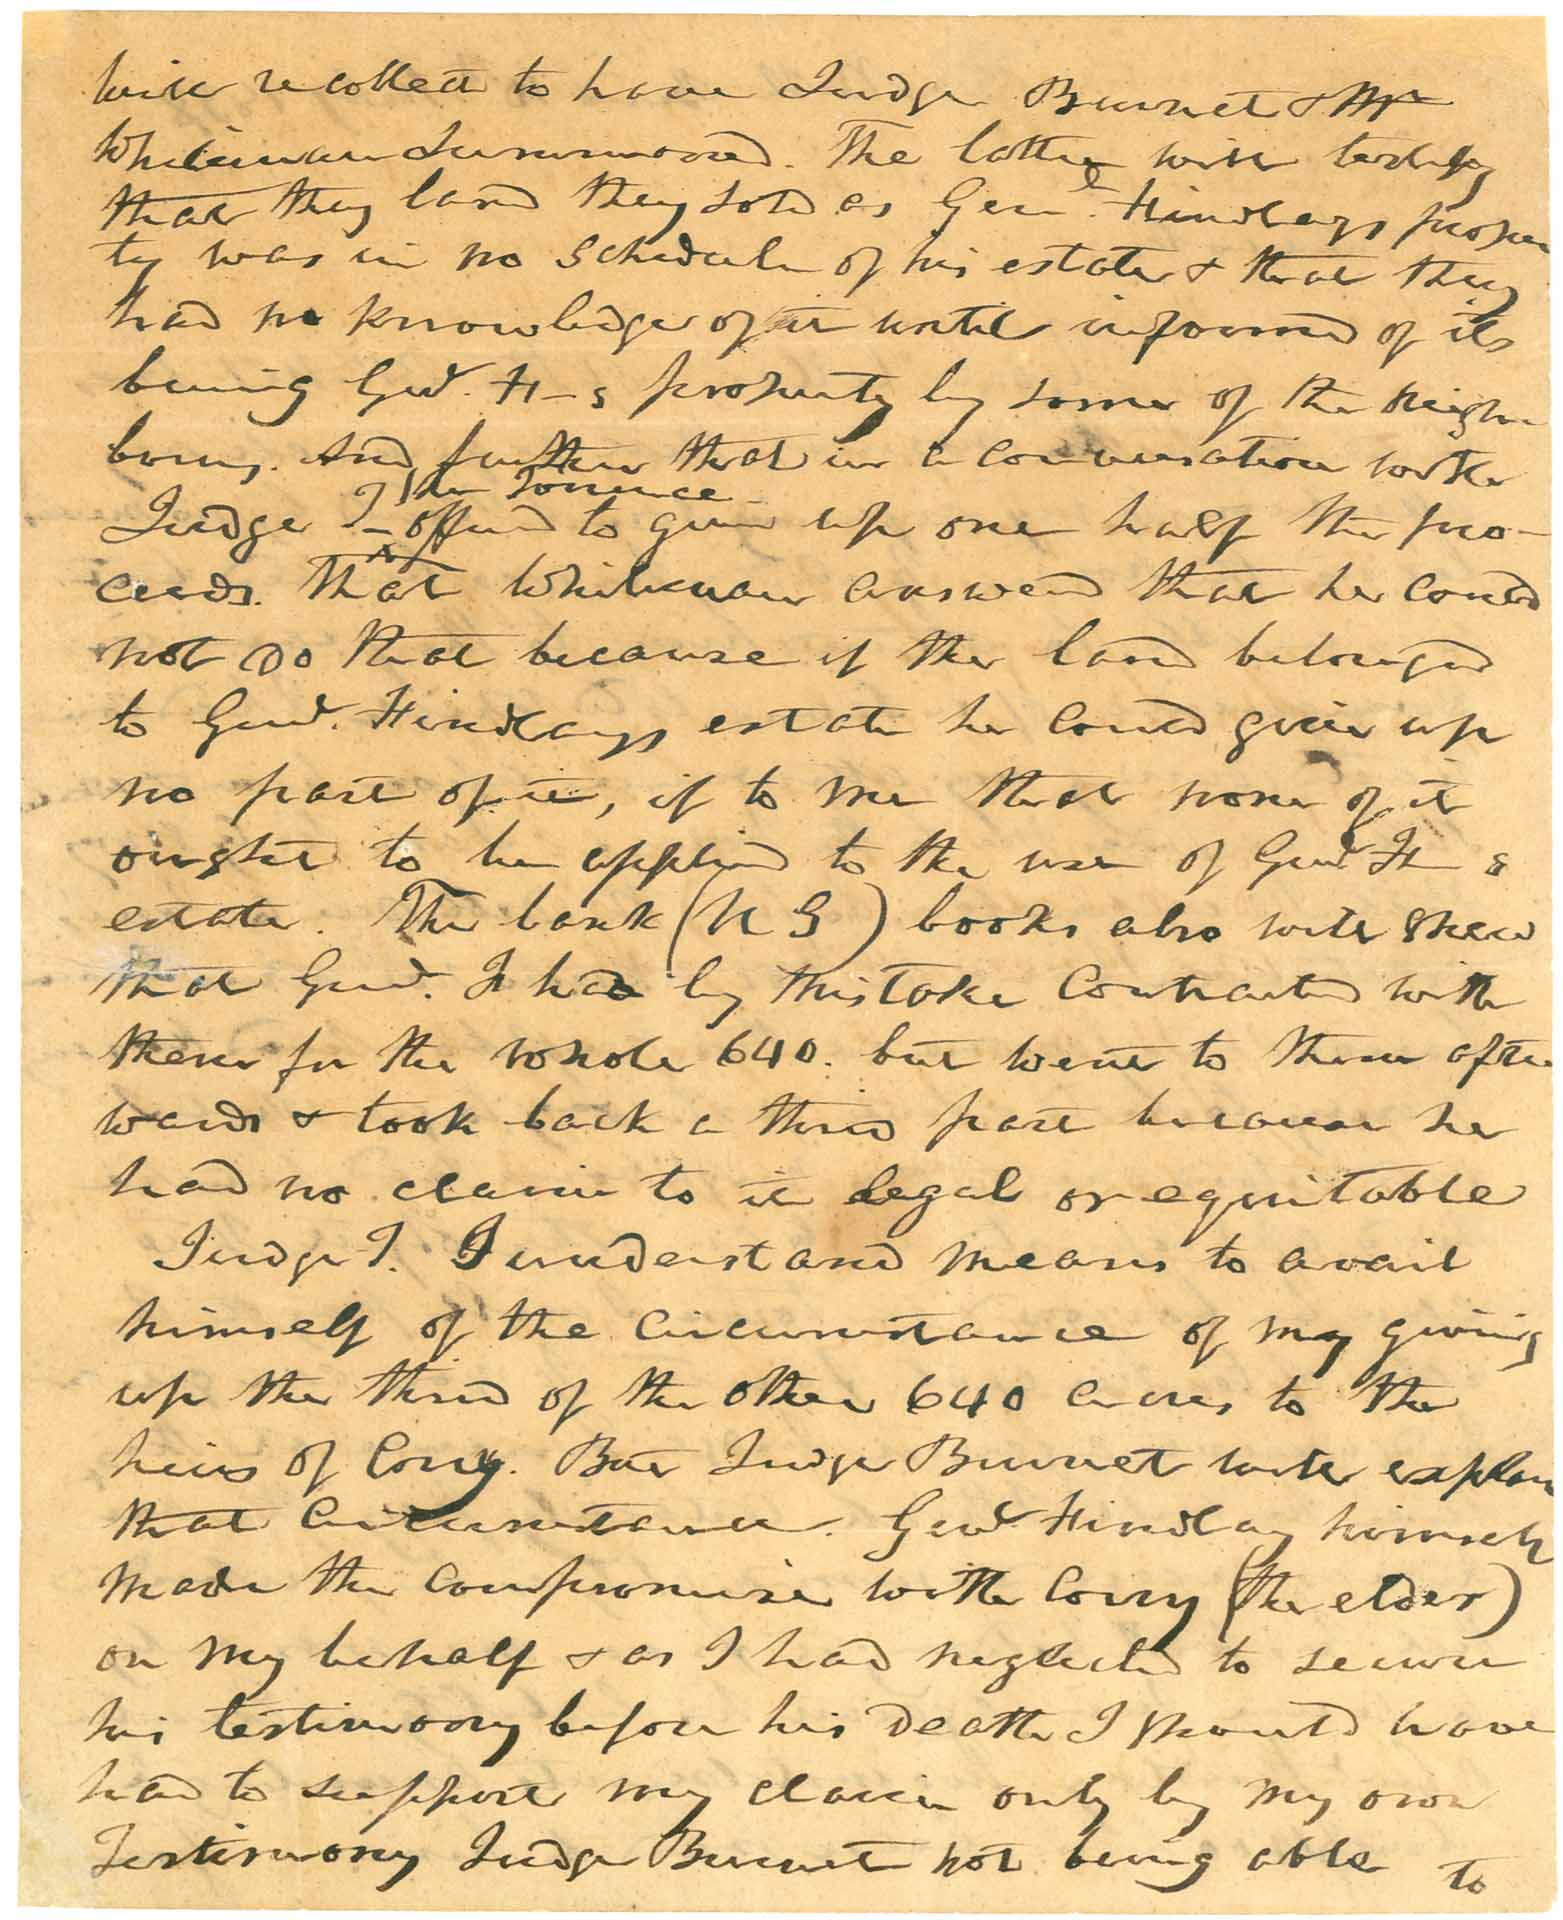 will recollect to have Judge Burnet & Mr
Whiteman Summoned. The latter will testify
that they land they sold as Genl. Findlays proper
ty was in no Schedule of his estate & that they
had no knowledge of it until informed of its
being Genl. F–s property by some of the neigh
bours. And further that in a conversation with
Judge T–
the Tormence
offered to give up one half the pro-
ceeds. That Whiteman answered that he could
not do that because if the land belonged
to Genl. Findlays estate he could give up
no part of it, if to me that none of it
ought to be applied to the use of Genl F s
estate. The bank (U S) books also will shew
that Genl. F had by mistake Contracted with
them for the whole 640. but went to them after
wards & took back a third part because he
had no claim to it legal or equitable
Judge T. I understand means to avail
himself of the Circumstance of my giving
up the third of the other 640 acres to the
heirs of Corry. But Judge Burnet will explain
that Circumstance. Genl. Findlay himself
made the Compromise with Corry (the elder)
on my behalf & as I had neglected to secure
his testimony before his Death I should have
had to support my claim only by my own
Testimony Judge Burnet not being able to